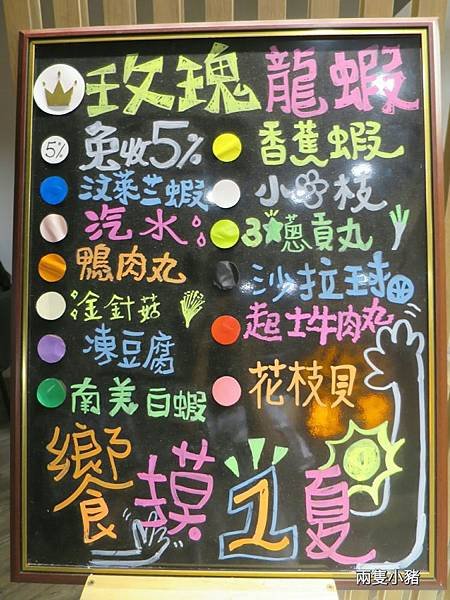 玫瑰龍蝦
5% 免收5%
香蕉蝦
汶萊芝蝦
汽水
3★蔥貢丸
鴨肉丸
沙拉球
金針菇
起士牛肉丸
凍豆腐
花枝貝
南美白蝦
饗摸1夏
兩隻小豬